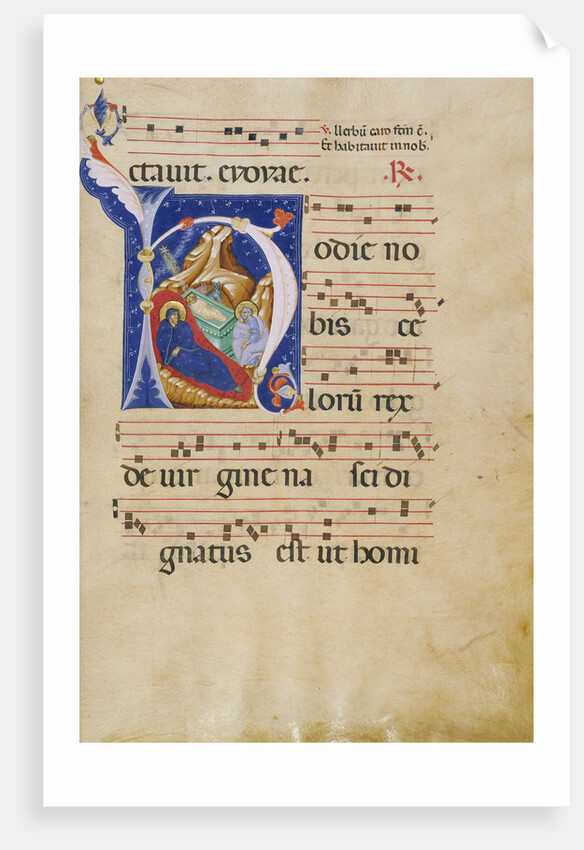 ℣. Uerbū caro ftm̄ ē.
Et habitauit in nob.
ctauit. evovae. .℞.
Hodie no
bis ce
lorū rex
de uir gine na sci di
gnatus est ut homi